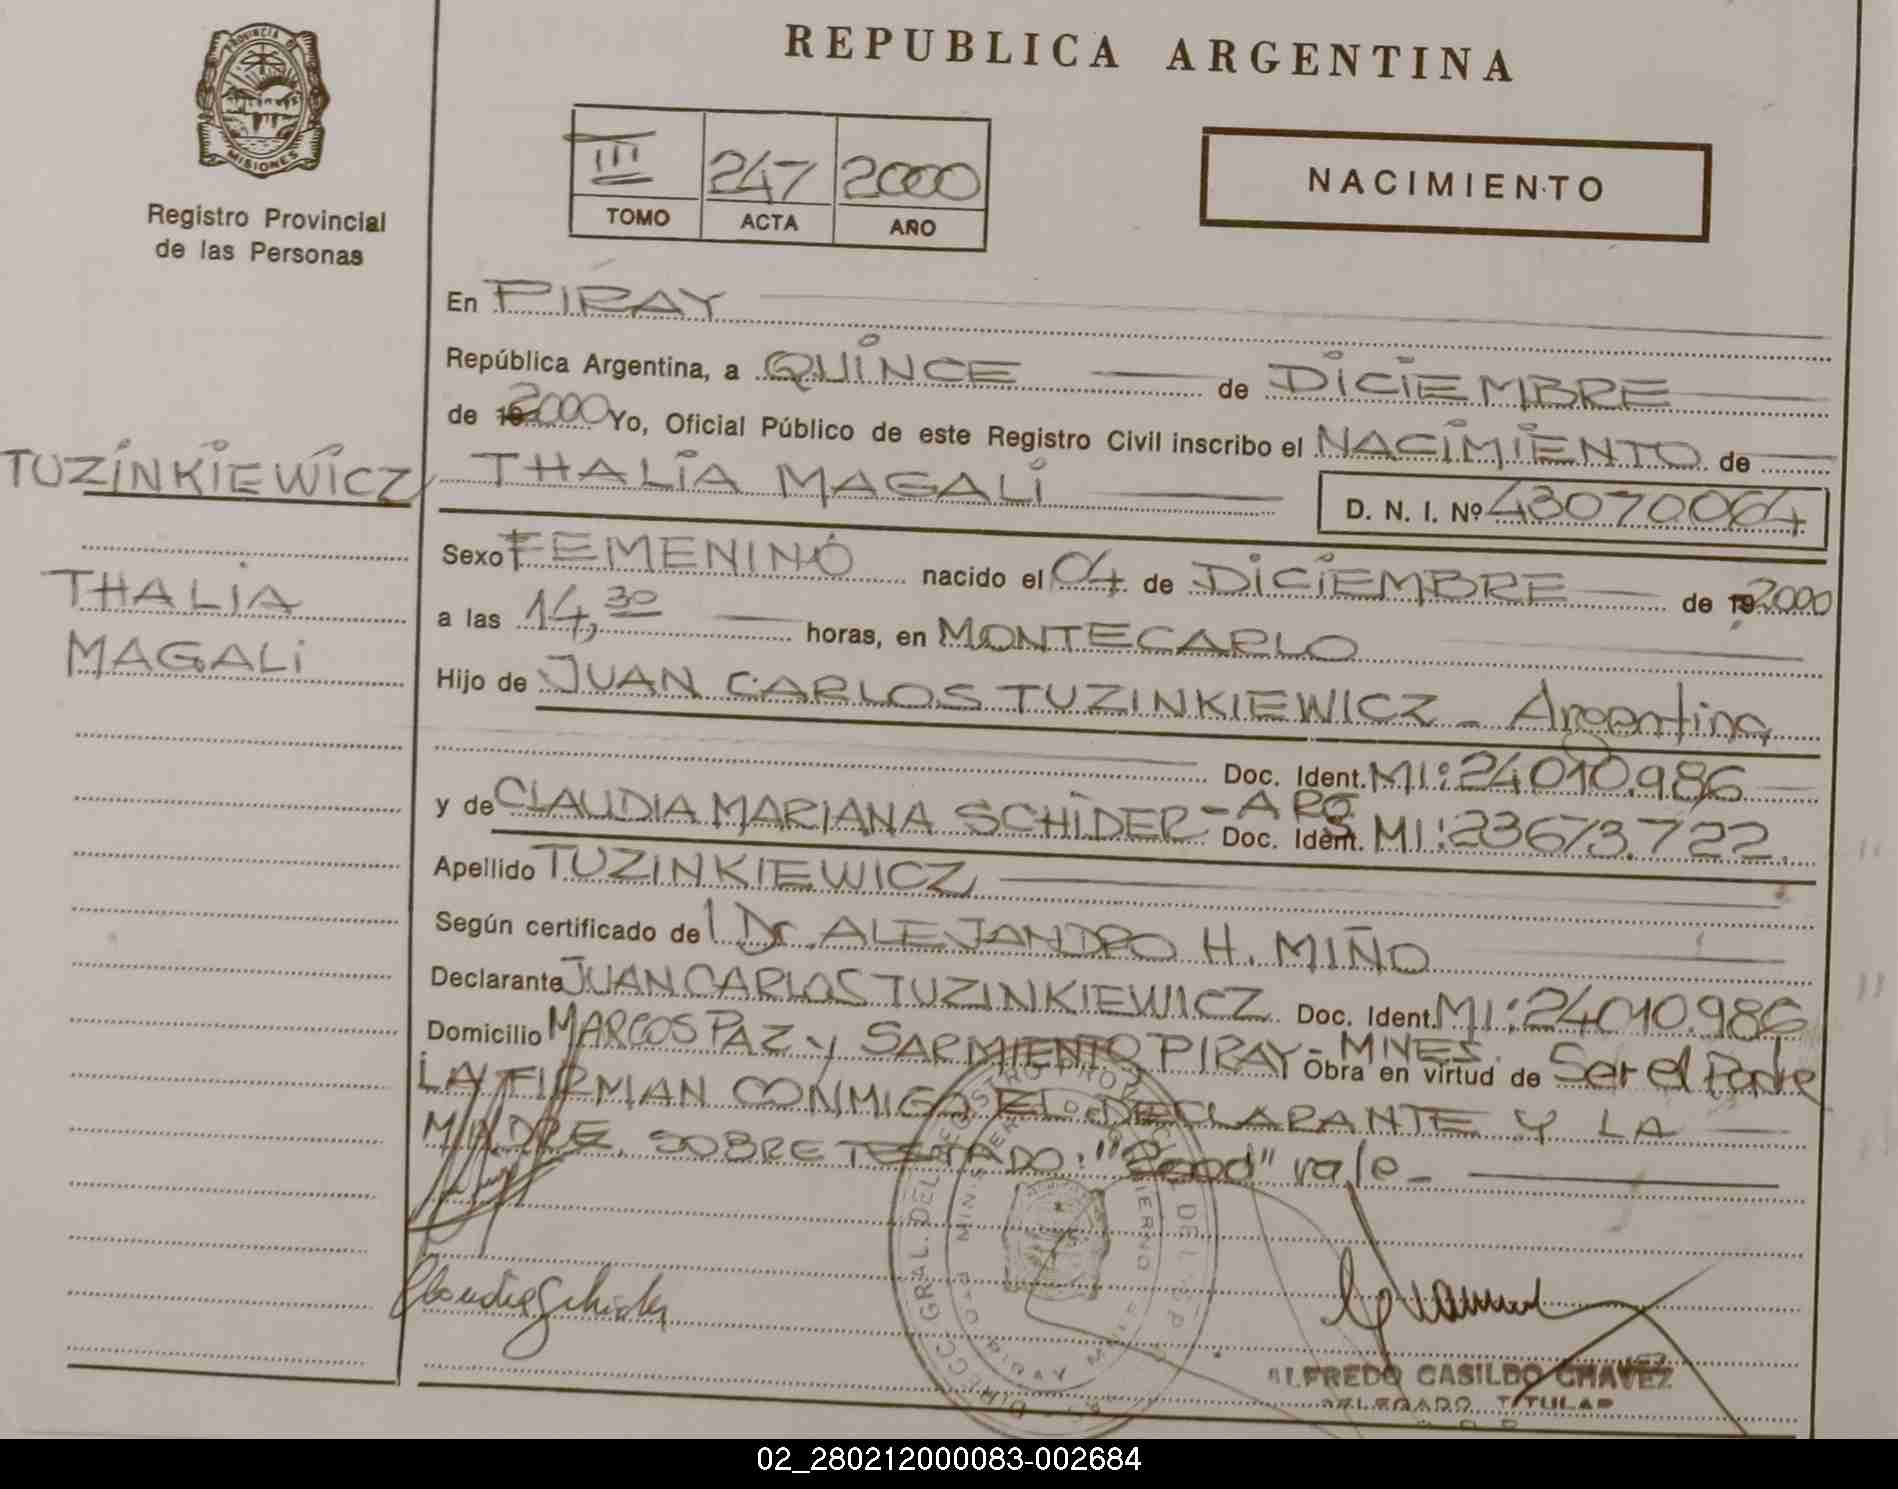 REPUBLICA ARGENTINA
PROVINCIA DE
MISIONES
Registro Provincial
de las Personas
III 247 2000
TOMO ACTA AÑO
NACIMIENTO
En PIRAY
República Argentina, a QUINCE de DICIEMBRE
de 19 2000 Yo, Oficial Público de este Registro Civil inscribo el NACIMIENTO de
TUZINKIEWICZ
THALIA MAGALI
D. N. I. Nº 43070064
THALIA
MAGALI
Sexo FEMENINO nacido el 04 de DICIEMBRE de 19 2000
a las 14,30 horas, en MONTECARLO
Hijo de JUAN CARLOS TUZINKIEWICZ - Argentina
Doc. Ident. MI: 24010.986
y de CLAUDIA MARIANA SCHIDER - ARG Doc. Ident. MI: 23673.722.
Apellido TUZINKIEWICZ
Según certificado del Dr. ALEJANDRO H. MIÑO
Declarante JUAN CARLOS TUZINKIEWICZ Doc. Ident. MI: 24010.986
Domicilio MARCOS PAZ y SARMIENTO PIRAY - MNES. Obra en virtud de Ser el Padre
LA FIRMAN CONMIGO EL DECLARANTE Y LA
MADRE. SOBRE TESTADO: "2000" vale -
Claudia Schider
ALFREDO CASILDO CHAVEZ
DELEGADO TITULAR
02_280212000083-002684